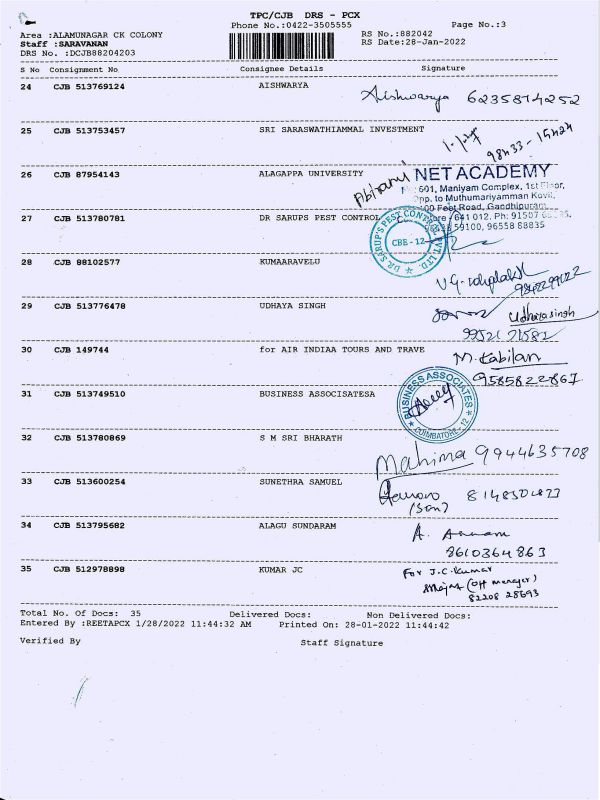 TPC/CJB DRS - PCX
Phone No.:0422-3505555
Page No.:3
Area :ALAMUNAGAR CK COLONY
RS No.:882042
Staff :SARAVANAN
RS Date:28-Jan-2022
DRS No. :DCJB88204203
S No Consignment No Consignee Details Signature
24 CJB 513769124 AISHWARYA
Aishwarya 6235814252
25 CJB 513753457 SRI SARASWATHIAMMAL INVESTMENT
26 CJB 87954143 ALAGAPPA UNIVERSITY
NET ACADEMY
601, Maniyam Complex, 1st Floor,
Opp. to Muthumariyamman Kovil,
100 Feet Road, Gandhipuram,
641 012, Ph: 91507
59100, 96558 88835
27 CJB 513780781 DR SARUPS PEST CONTROL
DR. SARUP'S PEST CONTROL PVT. LTD.
CBE - 12
28 CJB 88102577 KUMAARAVELU
29 CJB 513776478 UDHAYA SINGH
Udhayasingh
30 CJB 149744 for AIR INDIAA TOURS AND TRAVE
M. Kabilan
9585822867
31 CJB 513749510 BUSINESS ASSOCISATESA
BUSINESS ASSOCIATES
COIMBATORE - 12
32 CJB 513780869 S M SRI BHARATH
Mahima 9944635708
33 CJB 513600254 SUNETHRA SAMUEL
(Son)
34 CJB 513795682 ALAGU SUNDARAM
A.
8610364863
35 CJB 512978898 KUMAR JC
For J.C. Kumar
(Off manager)
82208 28693
Total No. Of Docs: 35 Delivered Docs: Non Delivered Docs:
Entered By :REETAPCX 1/28/2022 11:44:32 AM Printed On: 28-01-2022 11:44:42
Verified By Staff Signature